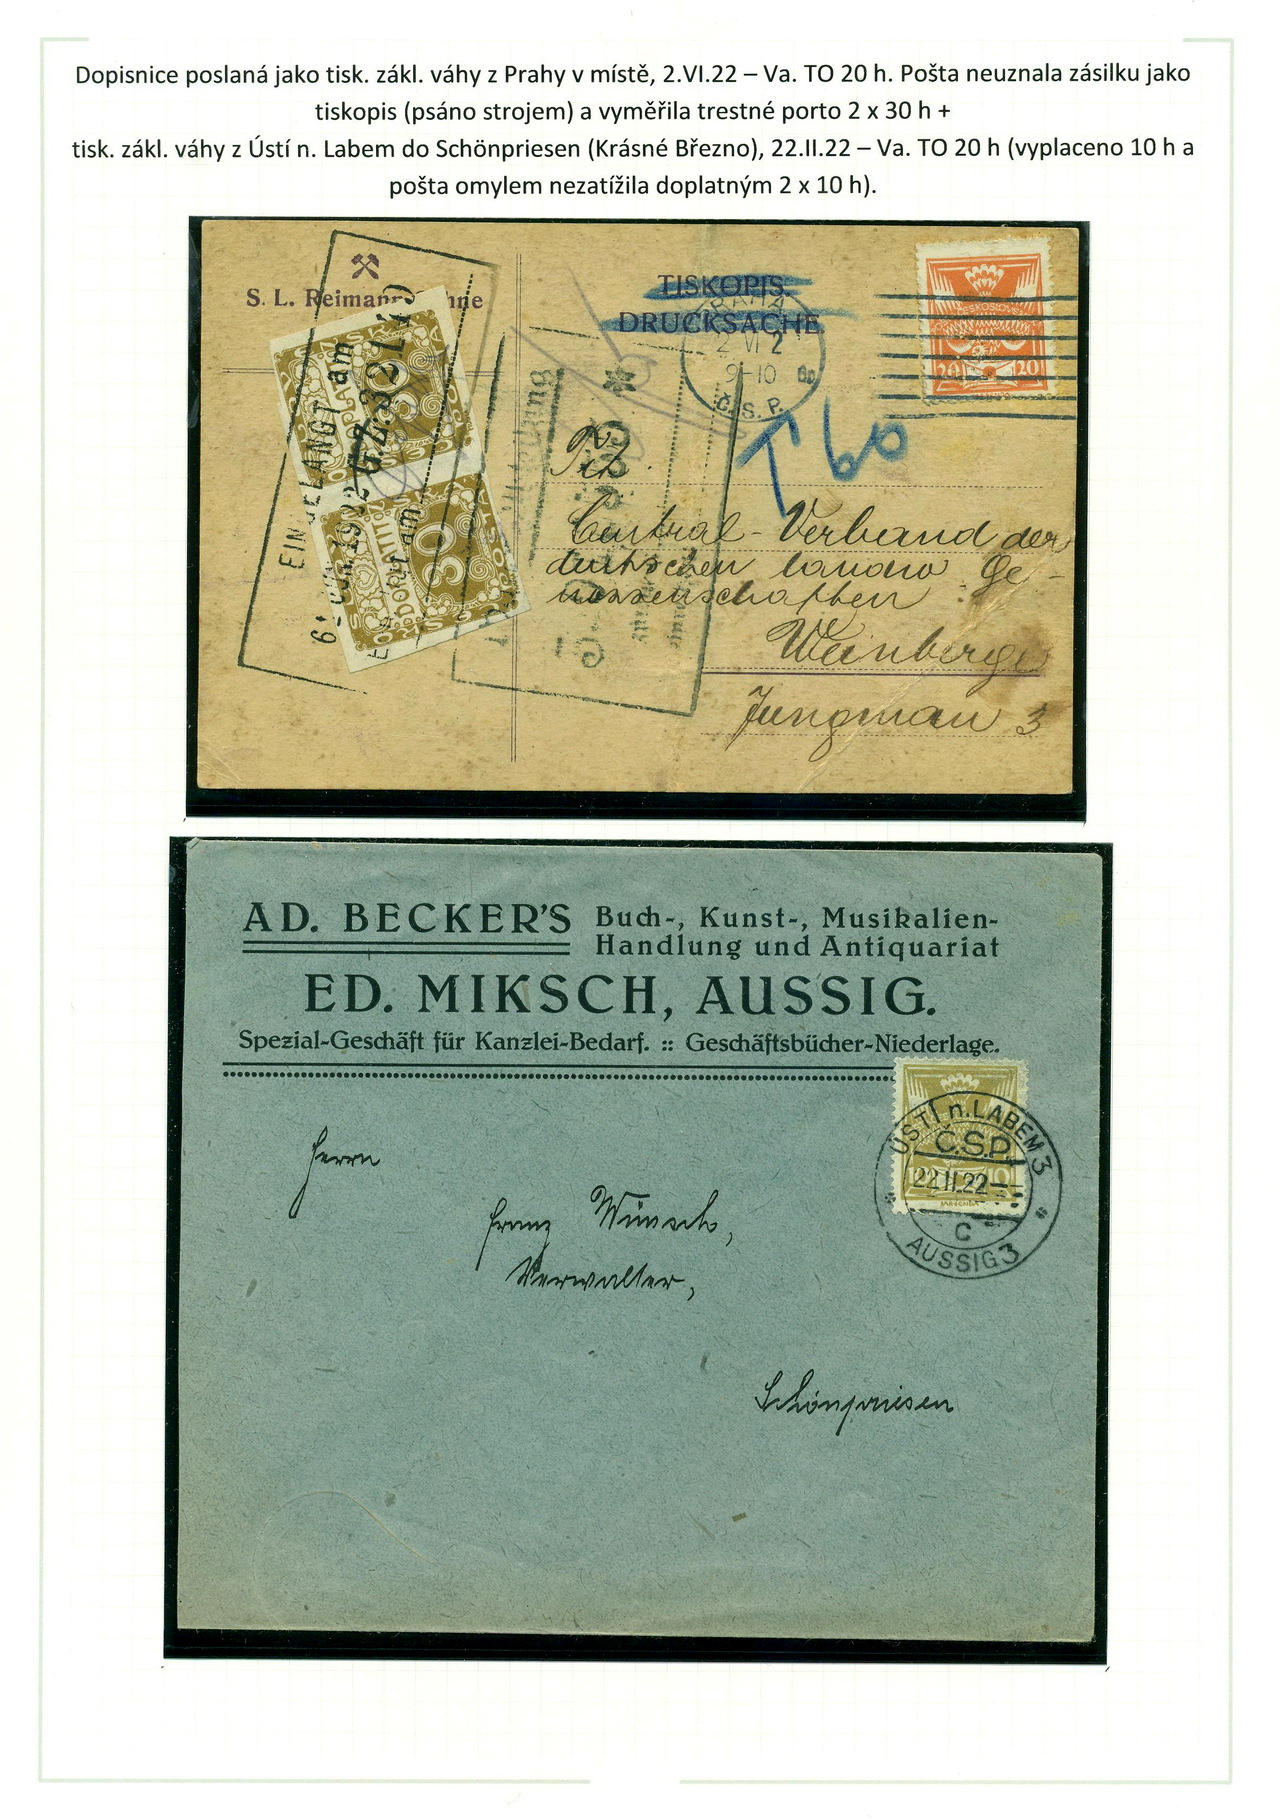 Dopisnice poslaná jako tisk. zákl. váhy z Prahy v místě, 2.VI.22 – Va. TO 20 h. Pošta neuznala zásilku jako
tiskopis (psáno strojem) a vyměřila trestné porto 2 x 30 h +
tisk. zákl. váhy z Ústí n. Labem do Schönpriesen (Krásné Březno), 22.II.22 – Va. TO 20 h (vyplaceno 10 h a
pošta omylem nezatížila doplatným 2 x 10 h).
S. L. Reimann
TISKOPIS.
DRUCKSACHE
PRAHA
2 VI 2
9-10
Č. S. P.
20 20
T 60
EINGELANGT am
1922
DOPLATIT
30
DOPLATIT
30
Central-Verband der
deutschen
Ge-
nossenschaften
Weinberge
Jungman 3
AD. BECKER'S Buch-, Kunst-, Musikalien-
Handlung und Antiquariat
ED. MIKSCH, AUSSIG.
Spezial-Geschäft für Kanzlei-Bedarf. :: Geschäftsbücher-Niederlage.
ÚSTÍ n. LABEM 3
Č.S.P.
22.II.22
10
C
AUSSIG 3
Herrn
Franz Wünsch,
Verwalter,
Schönpriesen